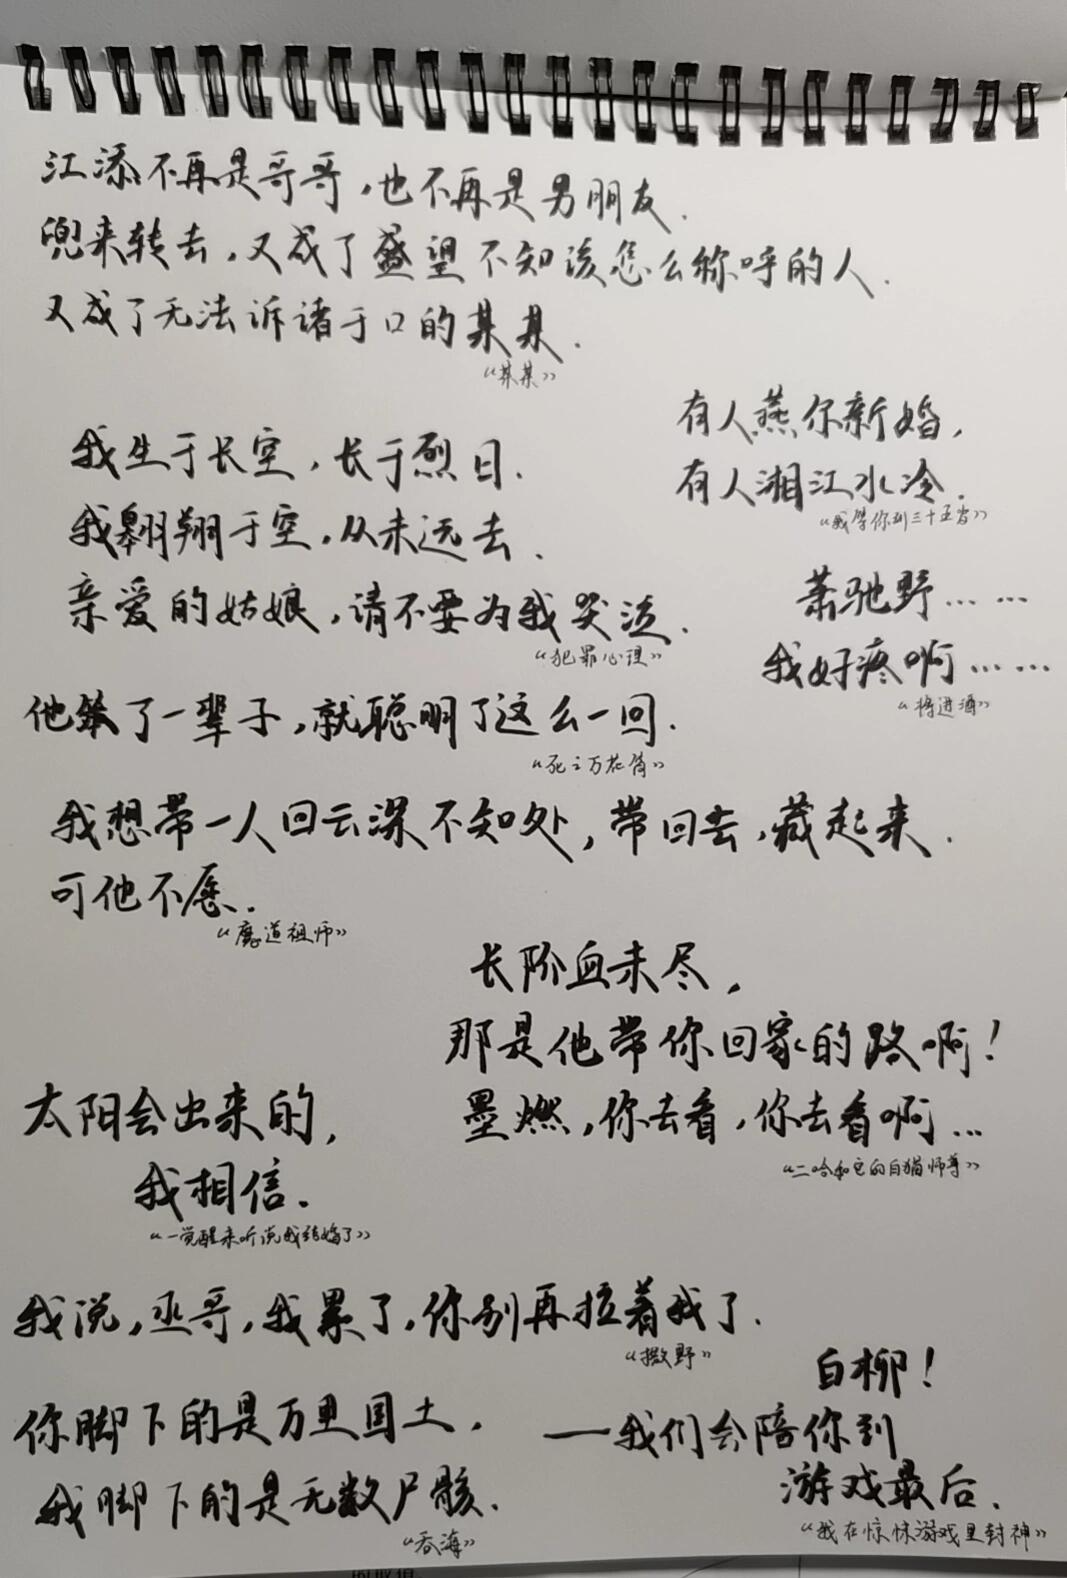 江添不再是哥哥，也不再是男朋友.
兜来转去，又成了盛望不知该怎么称呼的人.
又成了无法诉诸于口的某某.
“某某”
有人燕尔新婚，
有人湘江水冷.
“我等你到三十五岁”
我生于长空，长于烈日.
我翱翔于空，从未远去.
亲爱的姑娘，请不要为我哭泣.
“犯罪心理”
萧驰野……
我好疼啊……
“将进酒”
他笨了一辈子，就聪明了这么一回.
“死之万花筒”
我想带一人回云深不知处，带回去，藏起来.
可他不愿.
“魔道祖师”
长阶血未尽，
那是他带你回家的路啊！
墨燃，你去看，你去看啊…
“二哈和它的白猫师尊”
太阳会出来的，
我相信.
“一觉醒来听说我结婚了”
我说，丞哥，我累了，你别再拉着我了.
“撒野”
白柳！
——我们会陪你到
游戏最后.
“我在惊悚游戏里封神”
你脚下的是万里国土，
我脚下的是无数尸骸.
“吞海”